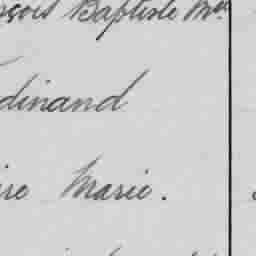 nçois Baptiste Mel
dinand
ire Marie.